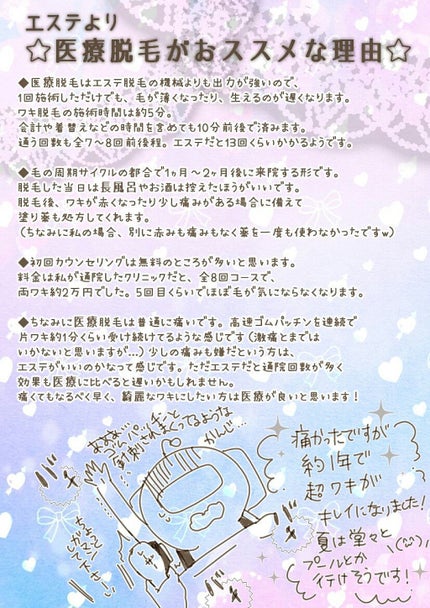 エステより
☆医療脱毛がおススメな理由☆
◆医療脱毛はエステ脱毛の機械よりも出力が強いので、
1回施術しただけでも、毛が薄くなったり、生えるのが遅くなります。
ワキ脱毛の施術時間は約5分。
会計や着替えなどの時間を含めても10分前後で済みます。
通う回数も全7〜8回前後程。エステだと13回くらいかかるようです。
◆毛の周期サイクルの都合で1ヶ月〜2ヶ月後に来院する形です。
脱毛した当日は長風呂やお酒は控えたほうがいいです。
脱毛後、ワキが赤くなったり少し痛みがある場合に備えて
塗り薬も処方してくれます。
(ちなみに私の場合、別に赤みも痛みもなく薬を一度も使わなかったですw)
◆初回カウンセリングは無料のところが多いと思います。
料金は私が通院したクリニックだと、全8回コースで、
両ワキ約2万円でした。5回目くらいでほぼ毛が気にならなくなります。
◆ちなみに医療脱毛は普通に痛いです。高速ゴムパッチンを連続で
片ワキ約1分くらい受け続けてるような感じです(激痛とまでは
いかないと思いますが...)少しの痛みも嫌だという方は、
エステがいいのかなって感じです。ただエステだと通院回数が多く
効果も医療に比べると遅いかもしれません。
痛くてもなるべく早く、綺麗なワキにしたい方は医療が良いと思います!
ゴムパッチンと
針刺されまくってるような
かんじ...
バチ
バチ
バチ
ちょっと
ガマン
して下さい
痛かったですが
約1年で
超ワキが
キレイになりました!
夏は堂々と
プールとか
行けそうです!